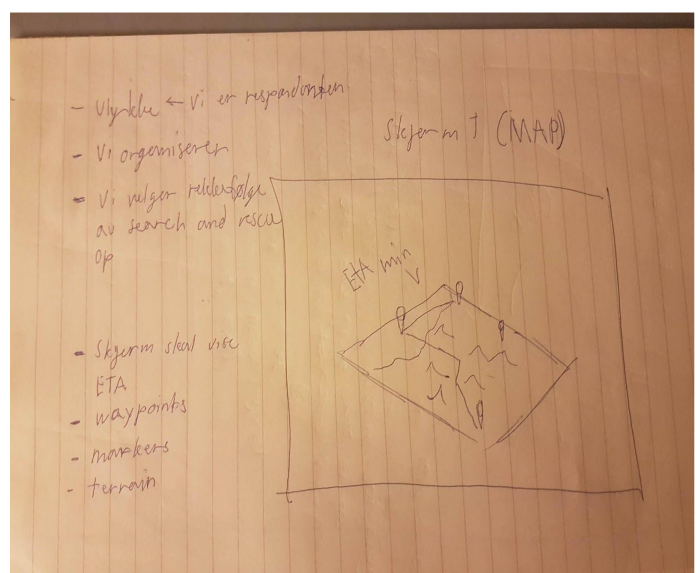 - Ulykke ← Vi er respondenten
- Vi organiserer
- Vi velger rekkefølge
av search and rescue
op
- Skjerm skal vise
ETA
- waypoints
- markers
- terrain
Skjerm 1 (MAP)
ETA min